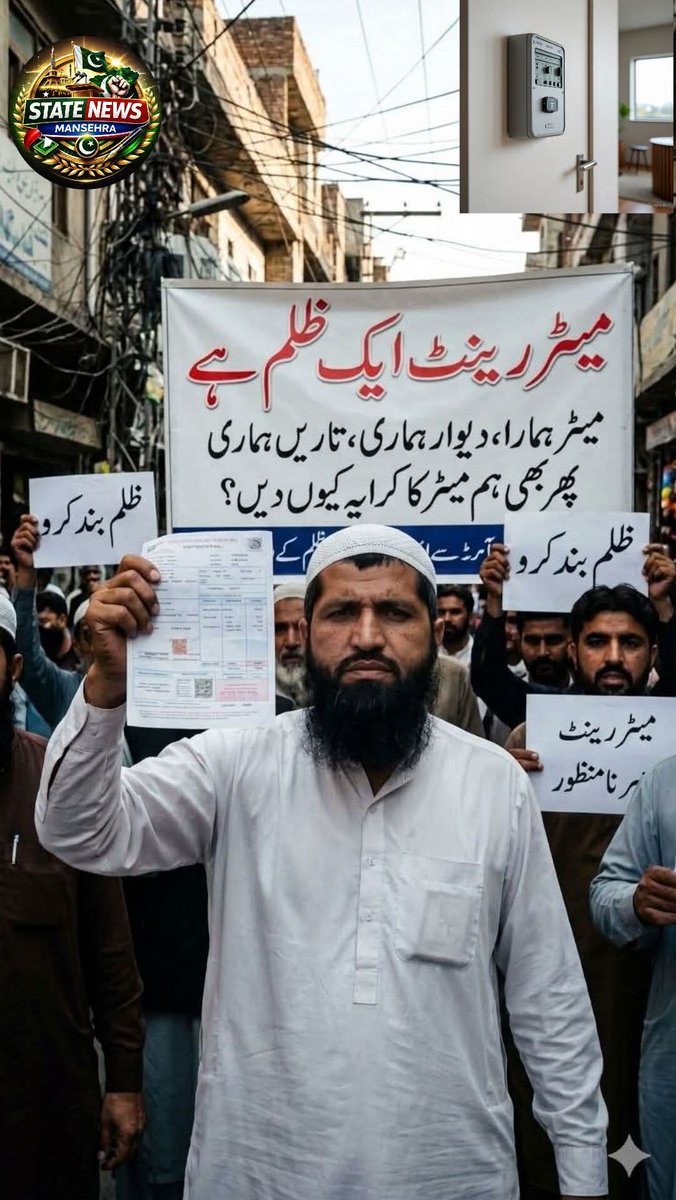 STATE NEWS
MANSEHRA
میٹر رینٹ ایک ظلم ہے
میٹر ہمارا، دیوار ہماری، تاریں ہماری
پھر بھی ہم میٹر کا کرایہ کیوں دیں؟
ظلم کے
ظلم بند کرو
ظلم بند کرو
میٹر رینٹ
نامنظور